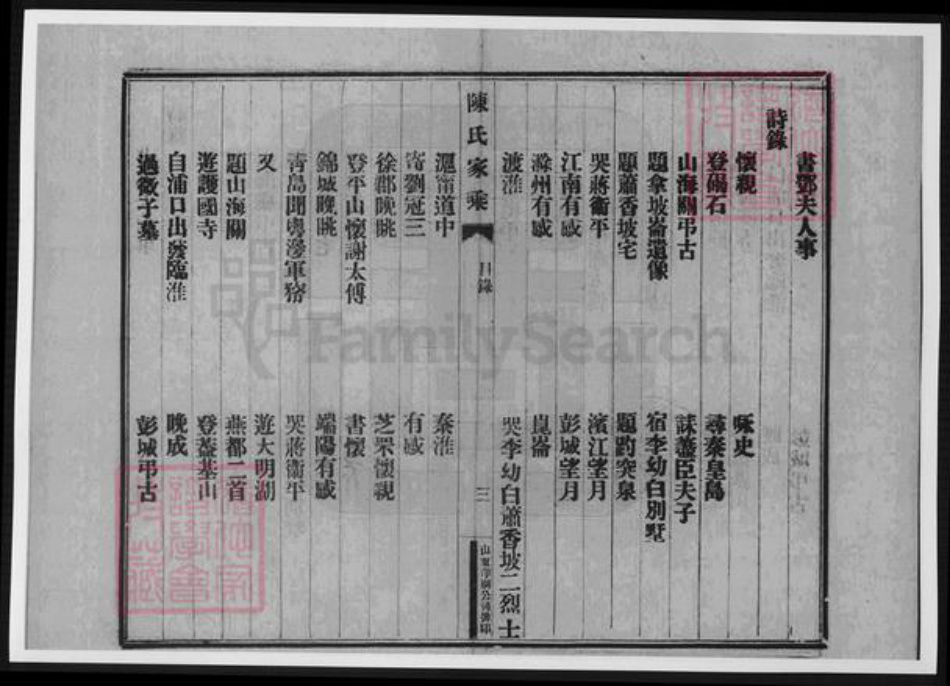 書鄧夫人事
詩錄
懷親
詠史
登碣石
尋秦皇島
山海關弔古
誄藎臣夫子
題拿坡崙遺像
宿李幼白別墅
題蕭香坡宅
題趵突泉
哭蔣衞平
濱江望月
江南有感
彭城望月
滁州有感
崑崙
渡淮
哭李幼白蕭香坡二烈士
陳氏家乘
目錄
三
山東印刷公司承印
滬甯道中
秦淮
寄劉冠三
有感
徐郡晚眺
芝罘懷親
登平山懷謝太傅
書懷
錦城晚眺
端陽有感
青島聞粵邊軍務
哭蔣衞平
又
遊大明湖
題山海關
燕都二首
遊護國寺
登蓋基山
自浦口出發臨淮
晚成
過微子墓
彭城弔古
FamilySearch